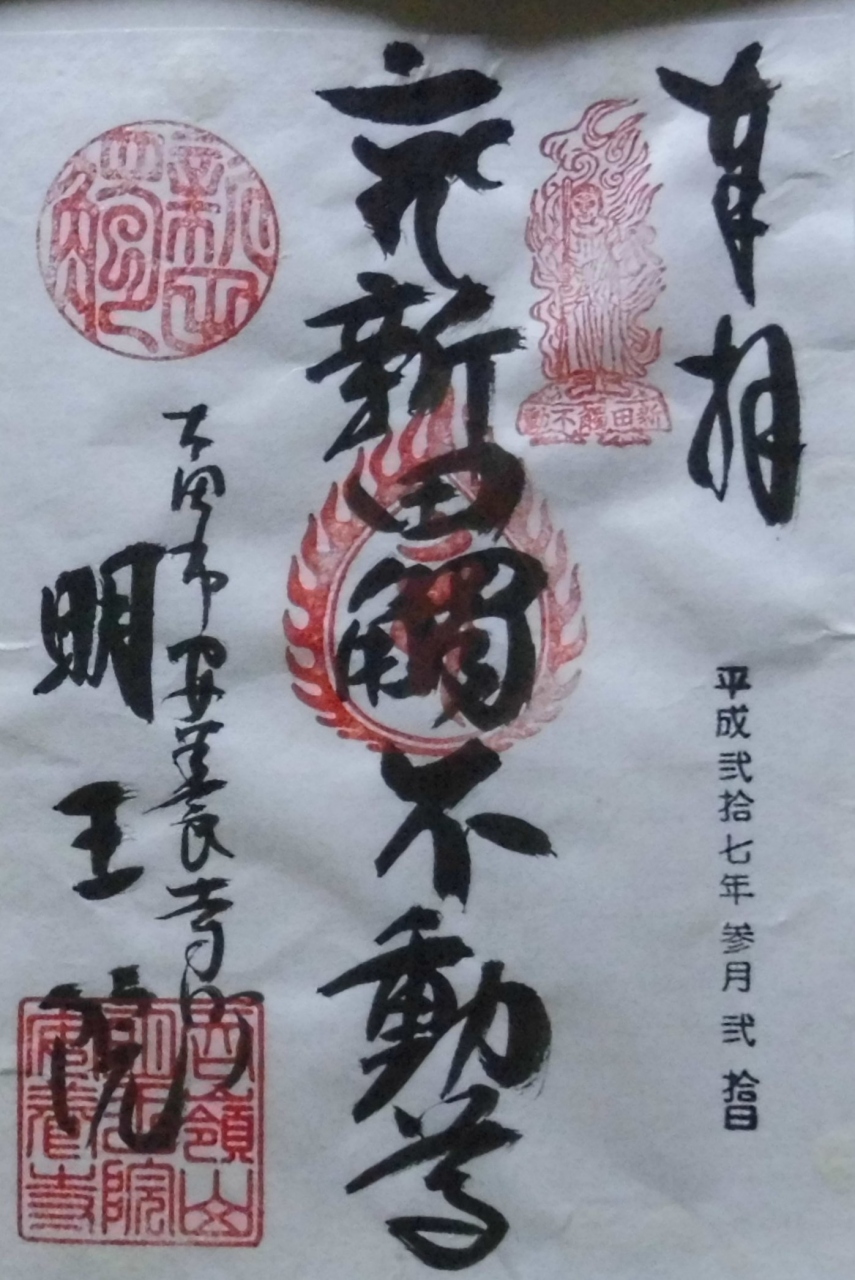 奉拝
平成弐拾七年参月弐拾日
新田觸不動
新田觸不動尊
太田市安養寺町
明王院
呑嶺山
明王院
安養寺